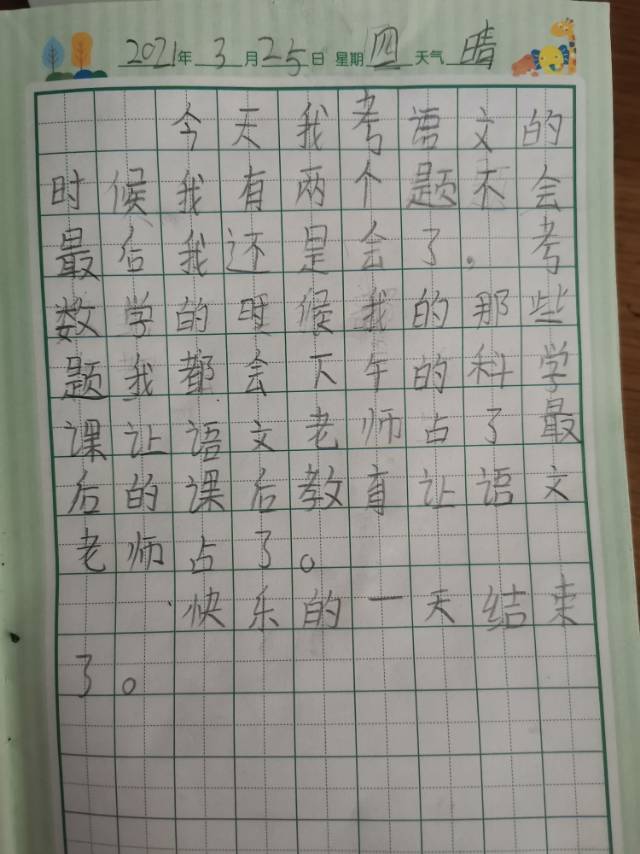 2021年 3月25日 星期四 天气 晴
今天我考语文的
时候我有两个题不会
最后我还是会了。考
数学的时候我的那些
题我都会下午的科学
课让语文老师占了最
后的课后教育让语文
老师占了。
快乐的一天结束
了。